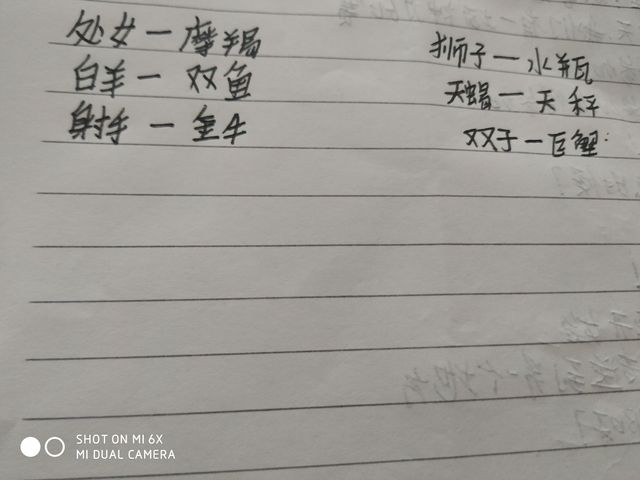 处女一摩羯
白羊一双鱼
射手一金牛
狮子一水瓶
天蝎一天秤
双子一巨蟹
SHOT ON MI 6X
MI DUAL CAMERA